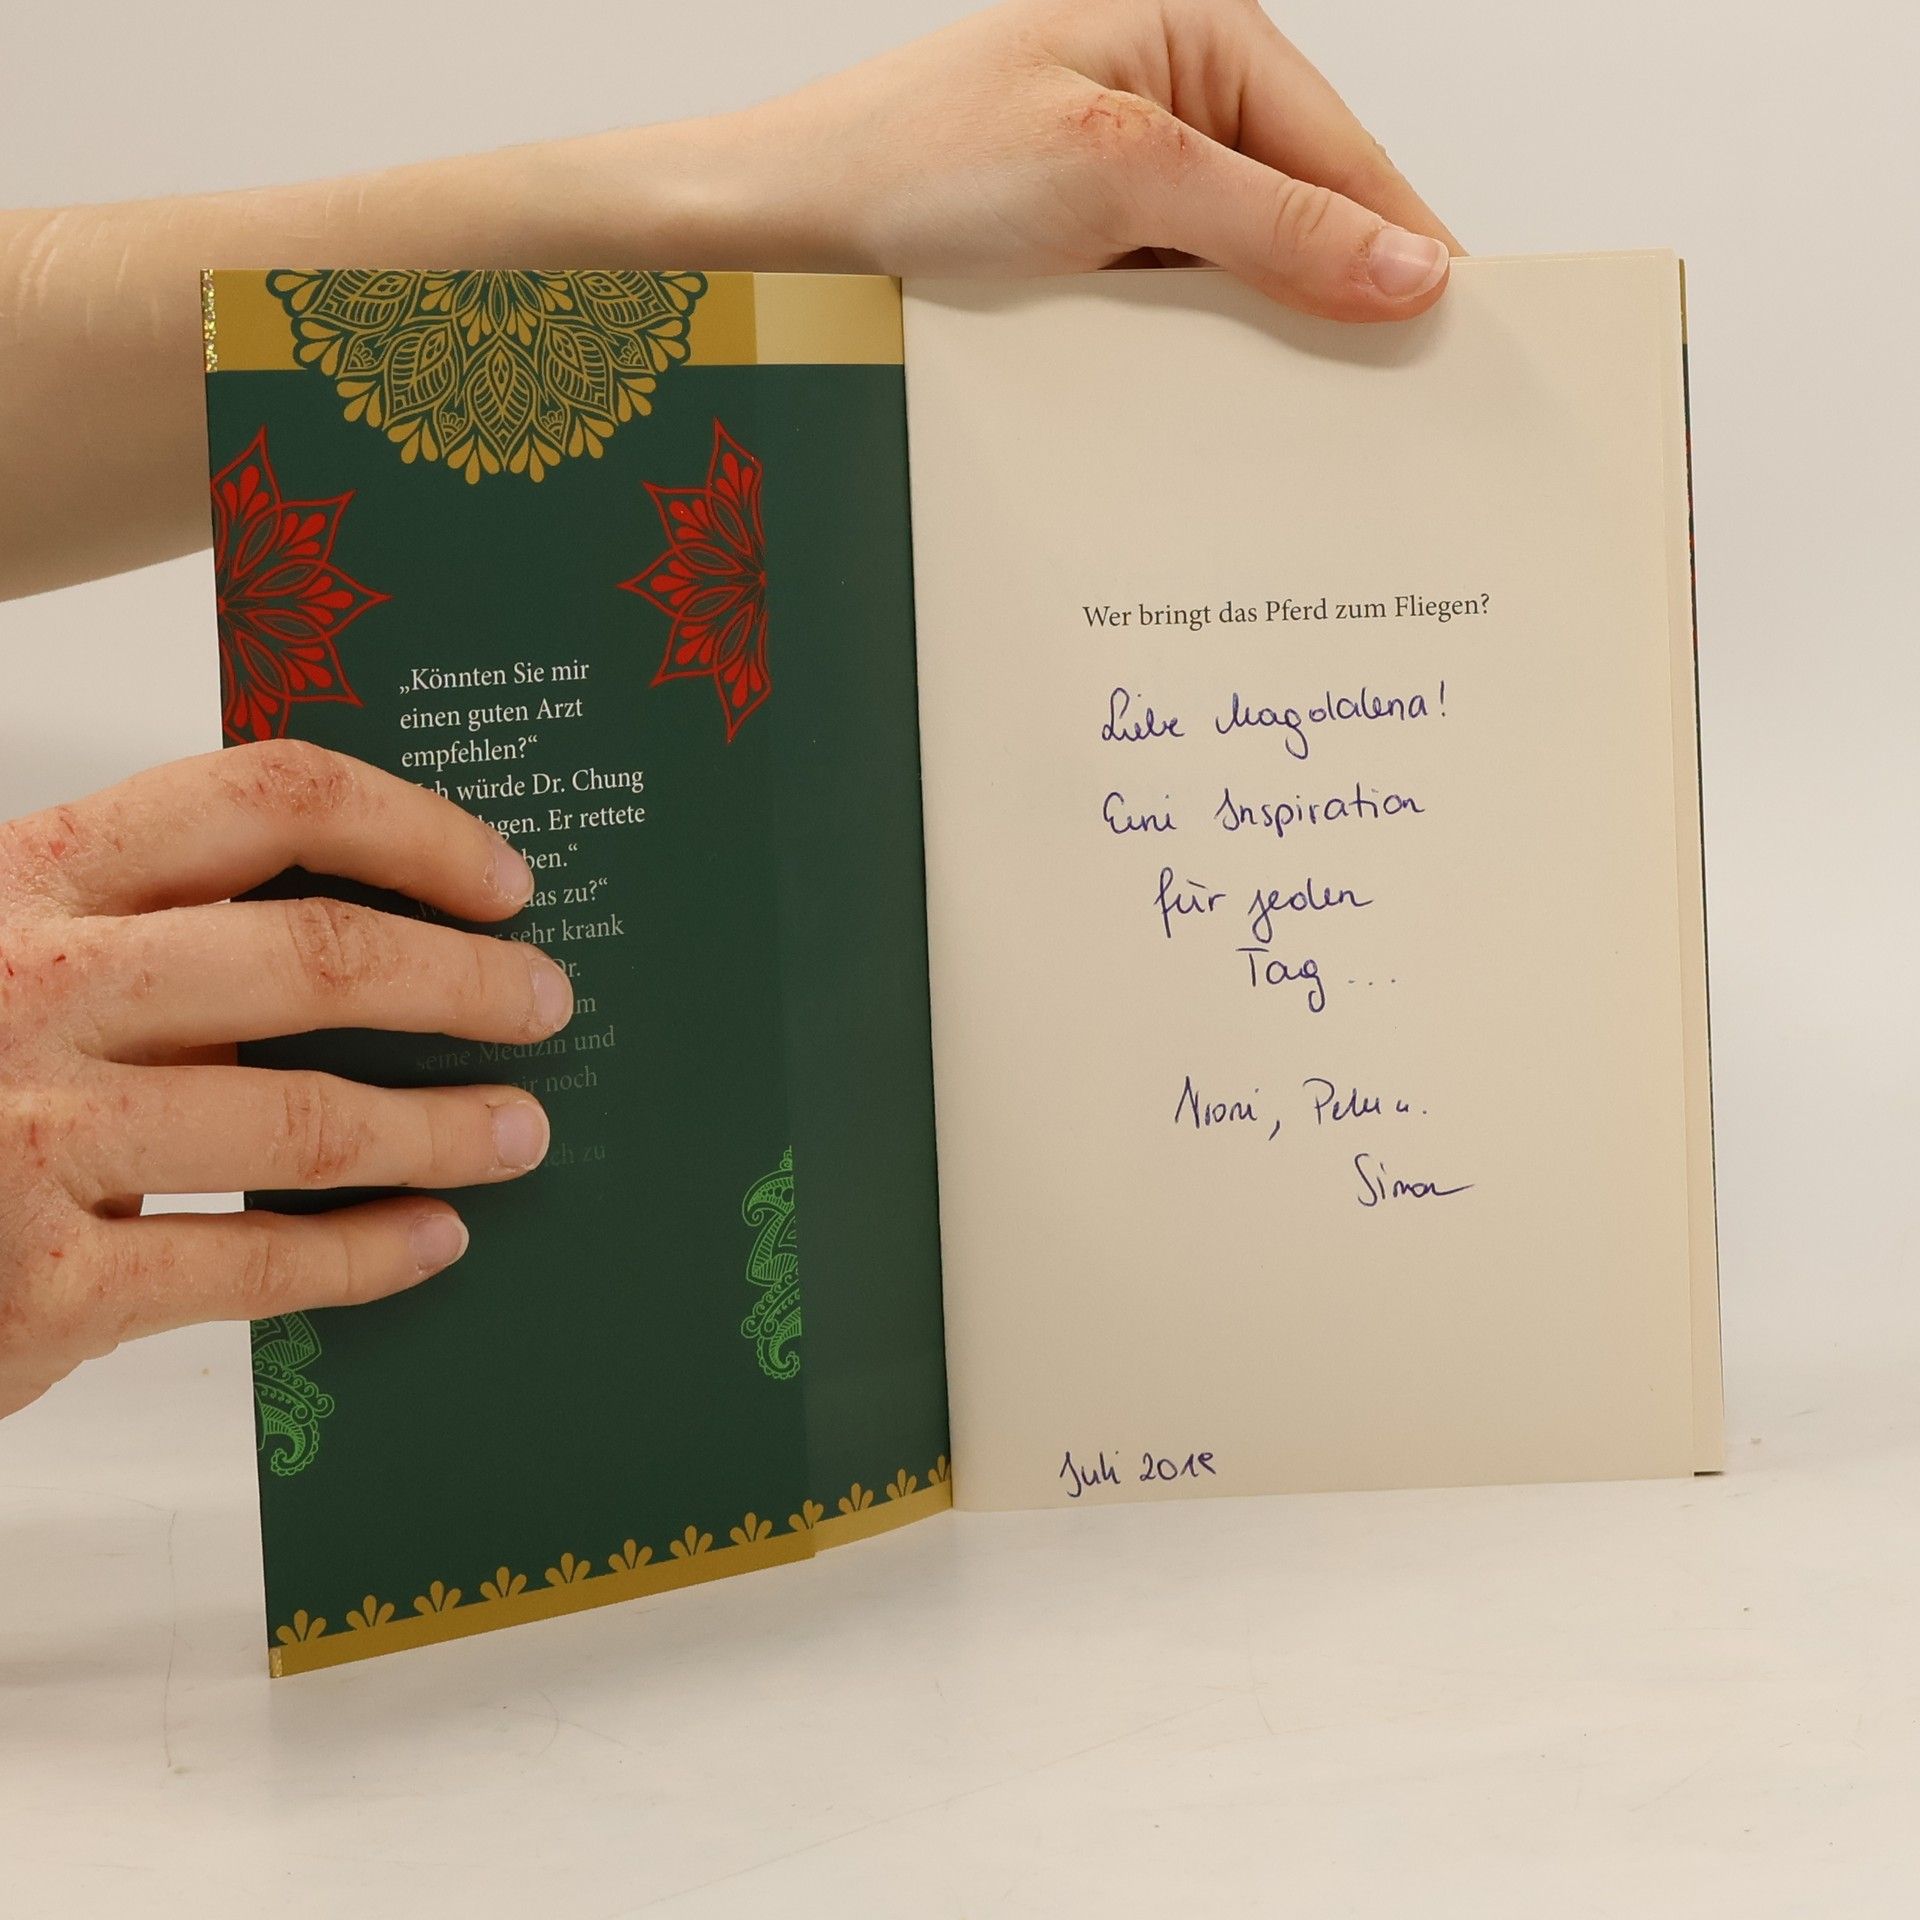 „Könnten Sie mir
einen guten Arzt
empfehlen?“
würde Dr. Chung
Er rettete
das zu?“
sehr krank
Dr.
seine Medizin und
noch
zu
Wer bringt das Pferd zum Fliegen?
Liebe Magdalena!
Eine Inspiration
für jeden
Tag ...
Peter u.
Simon
Juli 2018